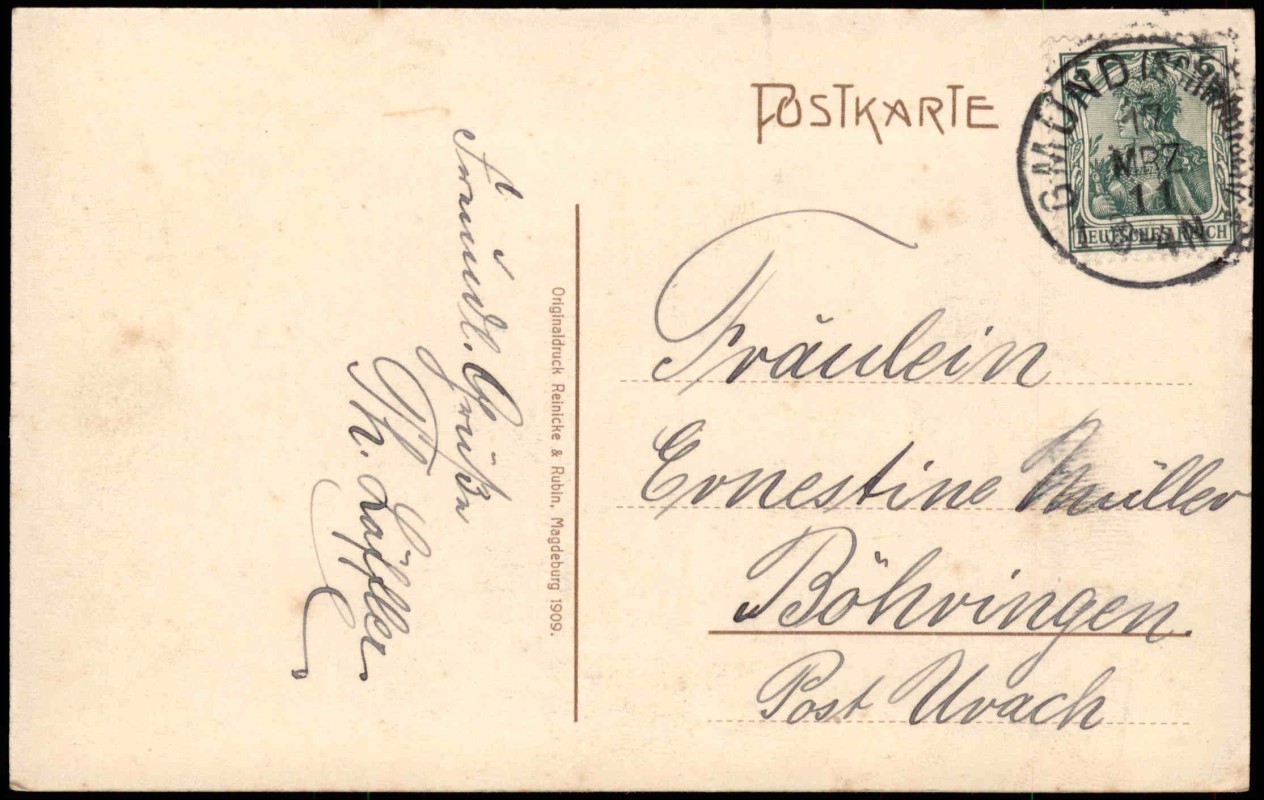 POSTKARTE
5 5
DEUTSCHES REICH
GMÜND
17
MRZ
11
Freundl. Grüße
Th. Löffler
Originaldruck Reinicke & Rubin, Magdeburg 1909.
Fräulein
Ernestine Müller
Böhringen
Post Urach